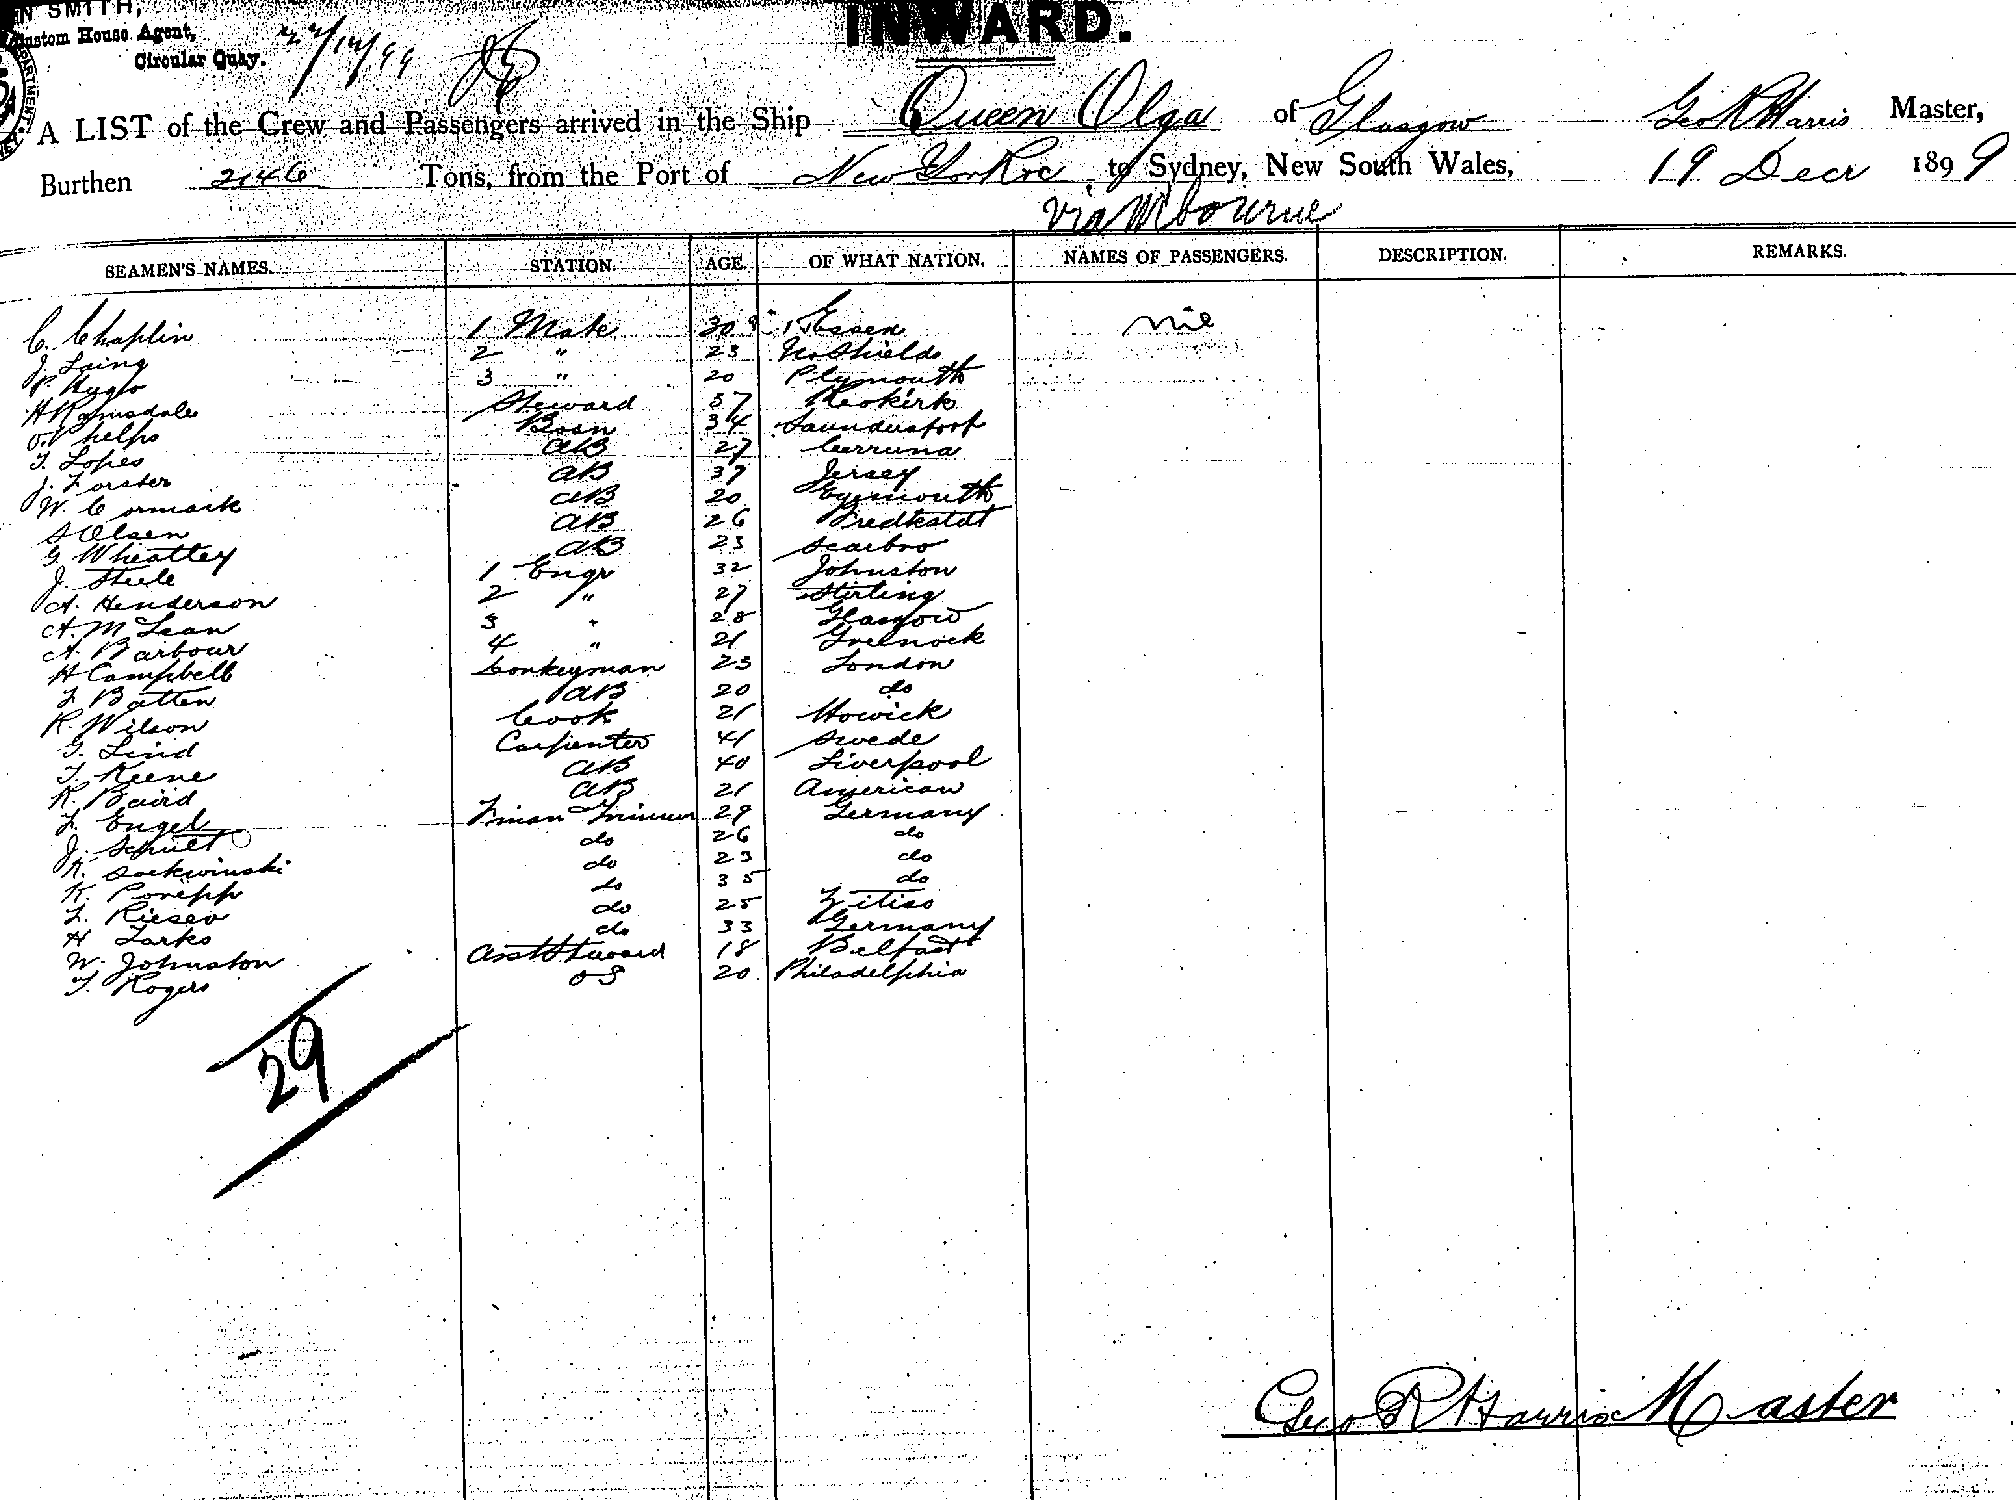 N SMITH,
Custom House Agent,
Circular Quay.
22/12/99
INWARD.
A LIST of the Crew and Passengers arrived in the Ship Queen Olga of Glasgow Geo R Harris Master,
Burthen 2146 Tons, from the Port of New York, to Sydney, New South Wales, 19 Decr 1899
via Mbourne
SEAMEN'S NAMES. STATION. AGE. OF WHAT NATION. NAMES OF PASSENGERS. DESCRIPTION. REMARKS.
C. Chaplin 1 Mate 30 Essex nil
J. Laing 2 " 23 No Shields
P. 3 " 20 Plymouth
H Ramsdale Steward 57
J. Phelps Bosn 34 Saundersfoot
T. Lopes AB 27 Corruna
J. Forster AB 37 Jersey
W. Cormack AB 20 Eyemouth
S Olsen AB 26 Fredkstdt
G Wheatley AB 23 Scarbro
J. Steele 1 Engr 32 Johnston
A. Henderson 2 " 27 Stirling
A. McLean 3 " 28 Glasgow
A. Barbour 4 " 21 Greenock
H Campbell Donkeyman 23 London
F. Batten AB 20 do
R. Wilson Cook 21 Howick
G. Lind Carpenter 41 Swede
T. Keene AB 40 Liverpool
R. Baird AB 21 American
F. Engel Fman Trimmer 29 Germany
J. Schult do 26 do
R. Sockwinski do 23 do
K. Porepp do 35 do
F. Riesev do 25
H Tarks do 33 Germany
W. Johnston Asst Steward 18 Belfast
T. Rogers OS 20 Philadelphia
29
Geo R Harris Master